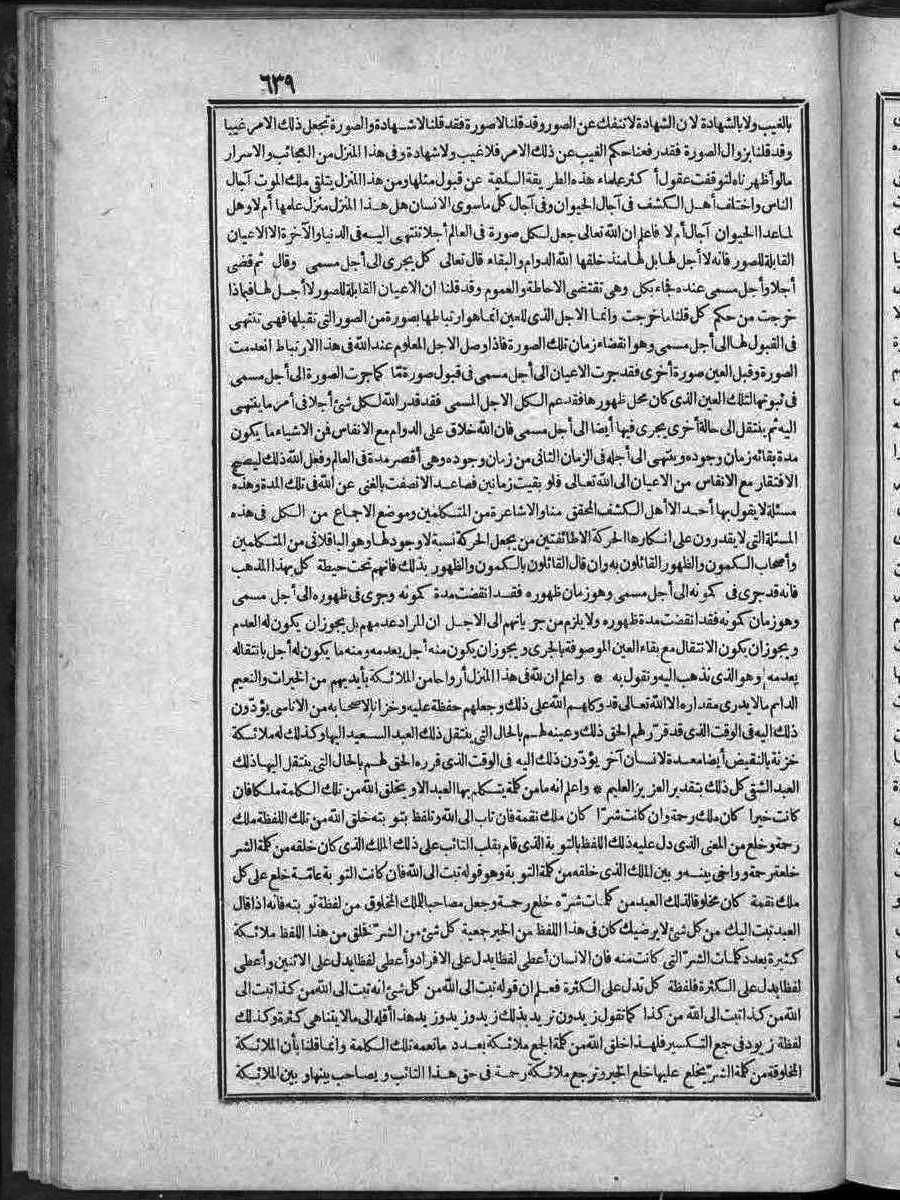 ٦٣٩
بالغيب ولا بالشهادة لان الشهادة لا تنفك عن الصور وقد قلنا لا صورة فقد قلنا لا شهادة والصورة تجعل ذلك الامر غيبا
وقد قلنا بزوال الصورة فقد رفعنا حكم الغيب عن ذلك الامر فلا غيب ولا شهادة وفى هذا المنزل من العجائب والاسرار
مالو أظهرناه لتوقفت عقول أكثر علماء هذه الطريقة السليمة عن قبول مثلها ومن هذا المنزل يتلقى ملك الموت آجال
الناس واختلف أهل الكشف فى آجال الحيوان وفى آجال كل ماسوى الانسان هل هذا المنزل منزل علمها أم لا وهل
لما عدا الحيوان آجال أم لا فاعلم ان الله تعالى جعل لكل صورة فى العالم أجلا تنتهى اليه فى الدنيا والآخرة الا الاعيان
القابلة للصور فانه لا أجل لها بل لها منذ خلقها الله الدوام والبقاء قال تعالى كل يجرى الى أجل مسمى وقال ثم قضى
أجلا وأجل مسمى عنده فجاء بكل وهى تقتضى الاحاطة والعموم وقد قلنا ان الاعيان القابلة للصور لا أجل لها فبماذا
خرجت من حكم كل قلنا ما خرجت وانما الاجل الذى للعين انما هو ارتباطها بصورة من الصور التى تقبلها فهى تنتهى
فى القبول لها الى أجل مسمى وهو انقضاء زمان تلك الصورة فاذا وصل الاجل المعلوم عند الله فى هذا الارتباط انعدمت
الصورة وقبل العين صورة أخرى فقد جرت الاعيان الى أجل مسمى فى قبول صورة مّا كما جرت الصورة الى أجل مسمى
فى ثبوتها لتلك العين الذى كان محل ظهورها فقد عم الكل الاجل المسمى فقد قدر الله لكل شئ أجلا فى أمر ما ينتهى
اليه ثم ينتقل الى حالة أخرى يجرى فيها أيضا الى أجل مسمى فان الله خلاق على الدوام مع الانفاس فمن الاشياء ما يكون
مدة بقائه زمان وجوده وينتهى الى أجله فى الزمان الثانى من زمان وجوده وهى أقصر مدة فى العالم وفعل الله ذلك ليصح
الافتقار مع الانفاس من الاعيان الى الله تعالى فلو بقيت زمانين فصاعدا لاتصفت بالغنى عن الله فى تلك المدة وهذه
مسئلة لا يقول بها أحد الا أهل الكشف المحقق منا والاشاعرة من المتكلمين وموضع الاجماع من الكل فى هذه
المسئلة التى لا يقدرون على انكارها الحركة الا طائفتين من يجعل الحركة نسبة لا وجود لها وهو الباقلانى من المتكلمين
وأصحاب الكمون والظهور القائلون به وان قال القائلون بالكمون والظهور بذلك فانهم تحت حيطة كل بهذا المذهب
فانه قد جرى فى كمونه الى أجل مسمى وهو زمان ظهوره فقد انقضت مدة كمونه وجرى فى ظهوره الى أجل مسمى
وهو زمان كمونه فقد انقضت مدة ظهوره ولا يلزم من جريانهم الى الاجل ان المراد عدمهم بل يجوز ان يكون له العدم
ويجوز ان يكون الانتقال مع بقاء العين الموصوفة بالجرى ويجوز ان يكون منه أجل بعدمه ومنه ما يكون له أجل بانتقاله
بعدمه وهو الذى نذهب اليه ونقول به * واعلم ان لله فى هذا المنزل أرواحا من الملائكة بأيديهم من الخيرات والنعيم
الدائم مالا يدرى مقداره الا الله تعالى قد وكلهم الله على ذلك وجعلهم حفظة عليه وخزانا لاصحابه من الاناسى يؤدّون
ذلك اليه فى الوقت الذى قد قرّر لهم الحق ذلك وعينه لهم بالحال التى ينتقل ذلك العبد السعيد اليها وكذلك له ملائكة
خزنة بالنقيض أيضا معدة لانسان آخر يؤدّون ذلك اليه فى الوقت الذى قرره الحق لهم بالحال التى ينتقل اليها ذلك
العبد الشقى كل ذلك بتقدير العزيز العليم * واعلم انه ما من كلمة يتكلم بها العبد الا ويخلق الله من تلك الكلمة ملكا فان
كانت خيرا كان ملك رحمة وان كانت شرّا كان ملك نقمة فان تاب الى الله وتلفظ بتوبته خلق الله من تلك اللفظة ملك
رحمة وخلع من المعنى الذى دل عليه ذلك اللفظ بالتوبة الذى قام بقلب التائب على ذلك الملك الذى كان خلقه من كلمة الشر
خلعة رحمة وواخى بينه وبين الملك الذى خلقه من كلمة التوبة وهو قوله تبت الى الله فان كانت التوبة عامّة خلع على كل
ملك نقمة كان مخلوقا لذلك العبد من كلمات شرّه خلع رحمة وجعل مصاحبا للملك المخلوق من لفظة توبته فانه اذا قال
العبد تبت اليك من كل شئ لا يرضيك كان فى هذا اللفظ من الخير جمعية كل شئ من الشرّ نخلق من هذا اللفظ ملائكة
كثيرة بعدد كلمات الشرّ التى كانت منه فان الانسان أعطى لفظا يدل على الافراد وأعطى لفظا يدل على الاثنين وأعطى
لفظا يدل على الكثرة فلفظة كل تدل على الكثرة فعلم ان قوله تبت الى الله من كل شئ انه تبت الى الله من كذا تبت الى
الله من كذا تبت الى الله من كذا كما تقول زيدون تريد بذلك زيد وزيد وزيد هذا أقله الى مالا يتناهى كثرة وكذلك
لفظة زيود فى جمع التكسير فلهذا خلق الله من كلمة الجمع ملائكة بعدد ما تعمه تلك الكلمة وانما قلنا بأن الملائكة
المخلوقة من كلمة الشرّ يخلع عليها خلع الخير وترجع ملائكة رحمة فى حق هذا التائب ويصاحب بينها وبين الملائكة